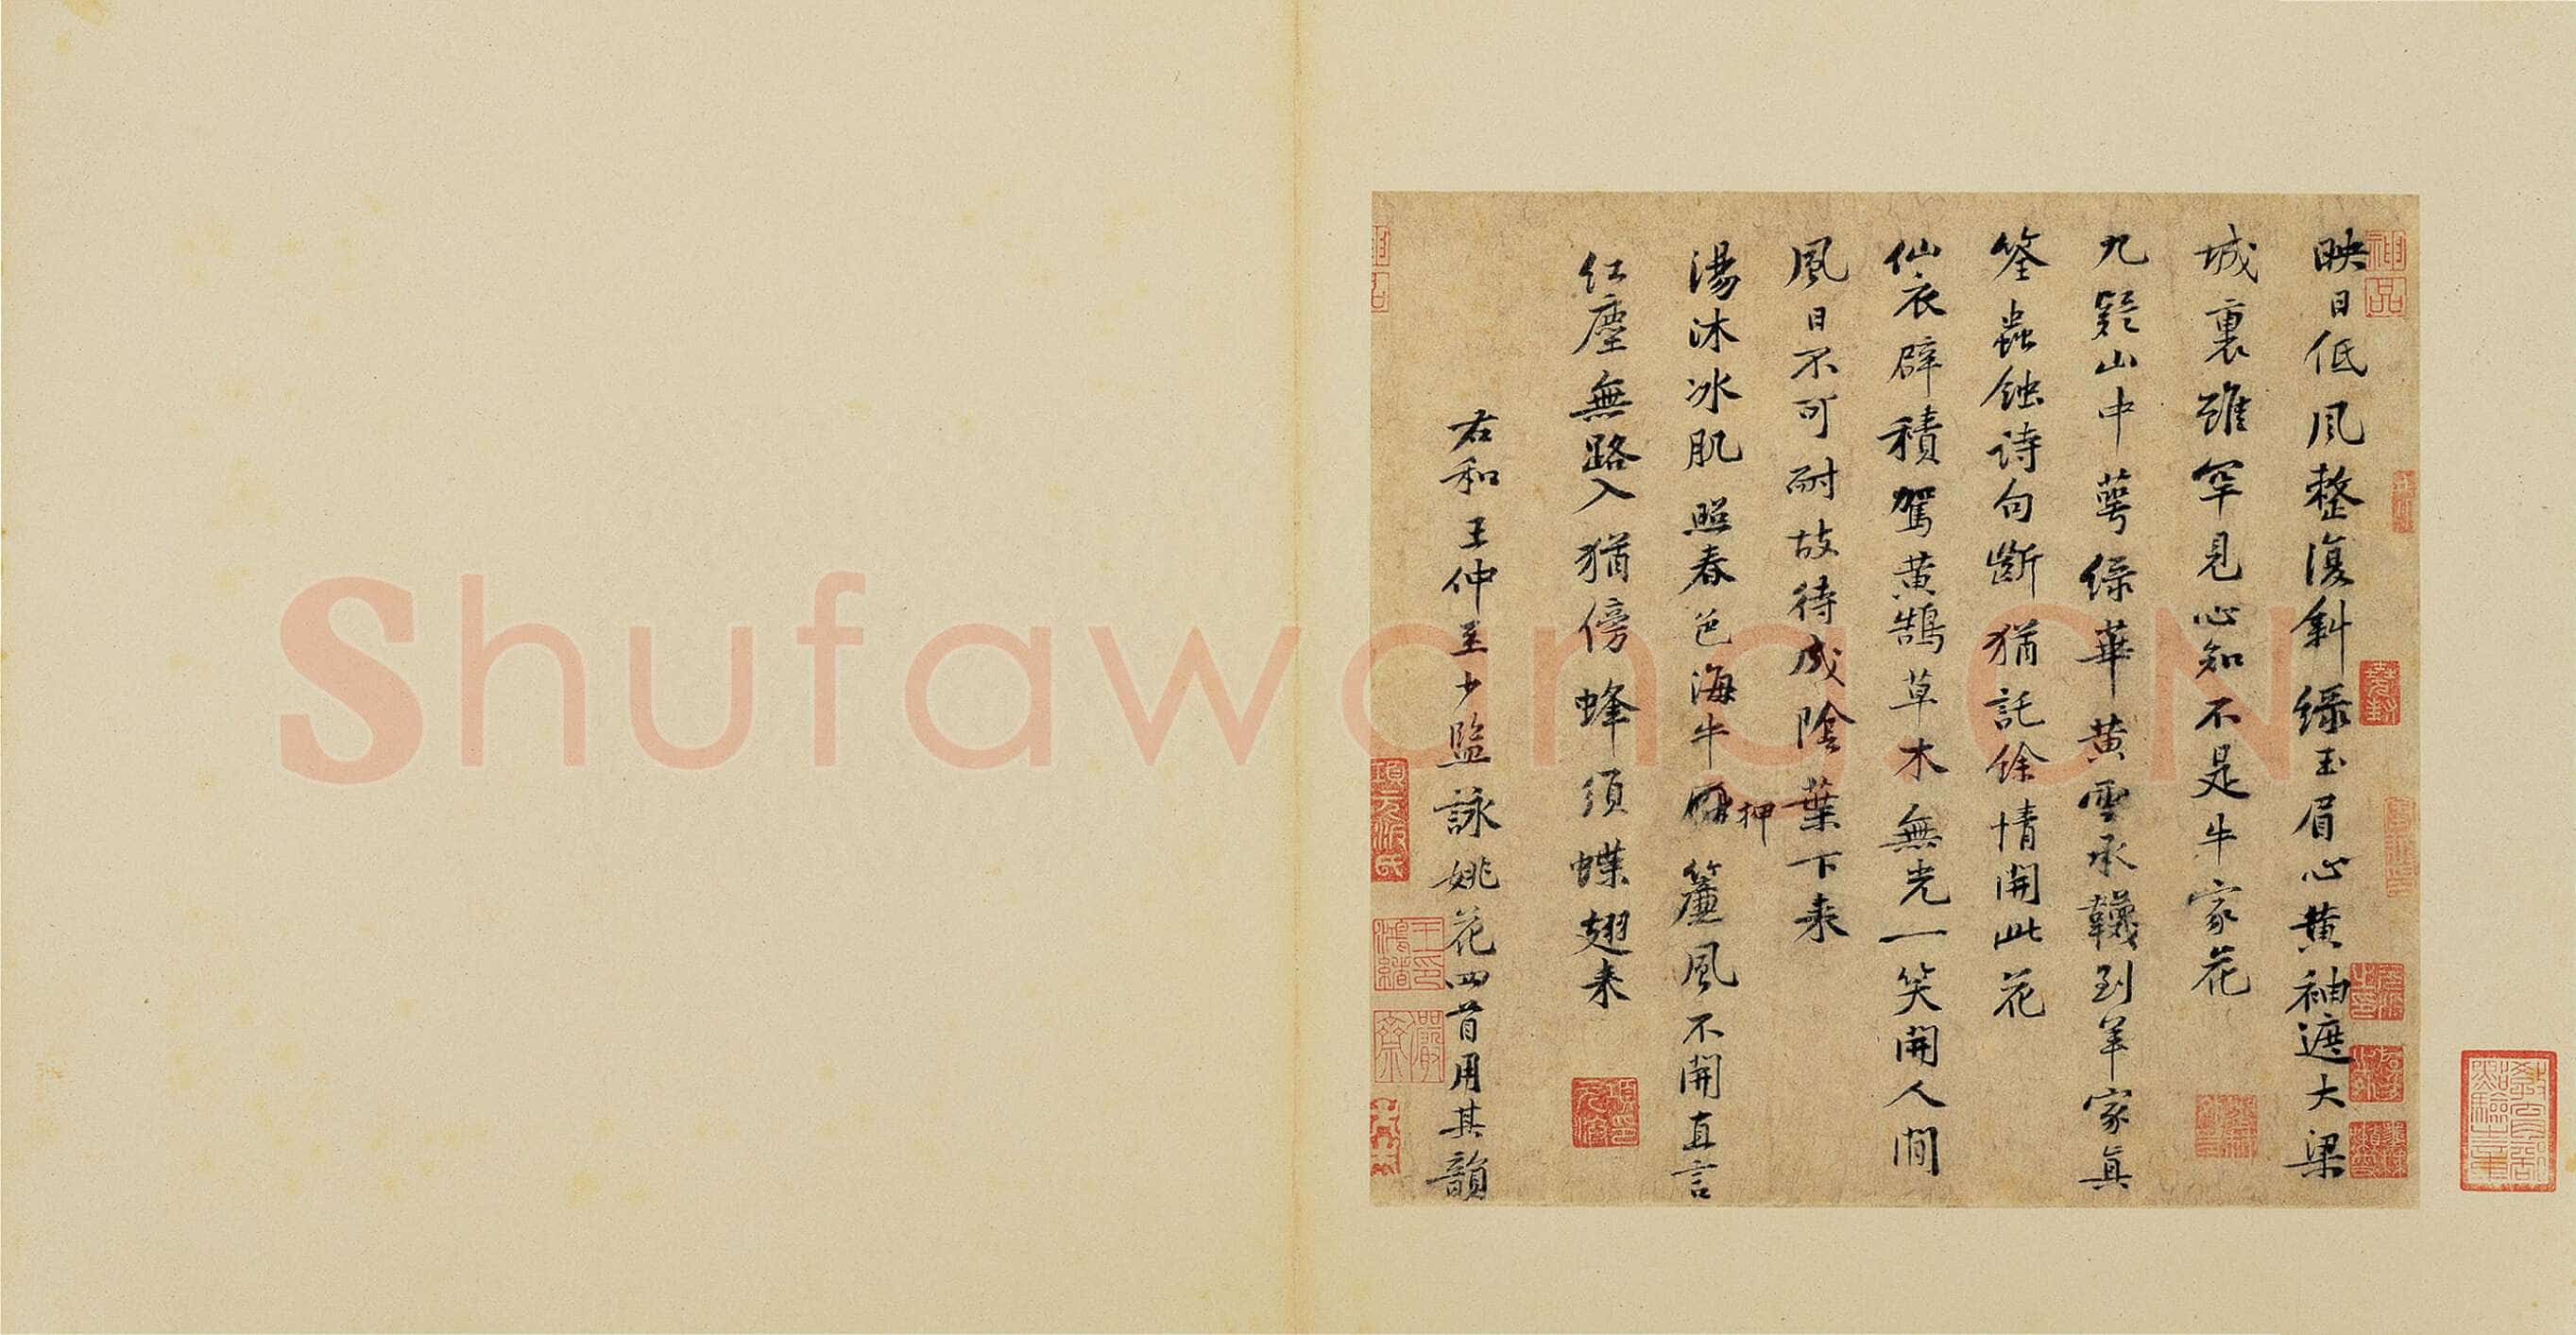 映日低風整復斜綠玉眉心黃袖遮大梁
城裏雖罕見心知不是牛家花
九疑山中萼綠華黃雲承韈到羊家真
筌蟲蝕詩句斷猶託餘情開此花
仙衣襞積駕黃鵠草木無光一笑開人間
風日不可耐故待成陰葉下來
湯沐冰肌照春色海牛押簾風不開直言
紅塵無路入猶傍蜂須蝶翅來
右和王仲至少監詠姚花四首用其韻
神品
項元汴氏
Shufawang.CN